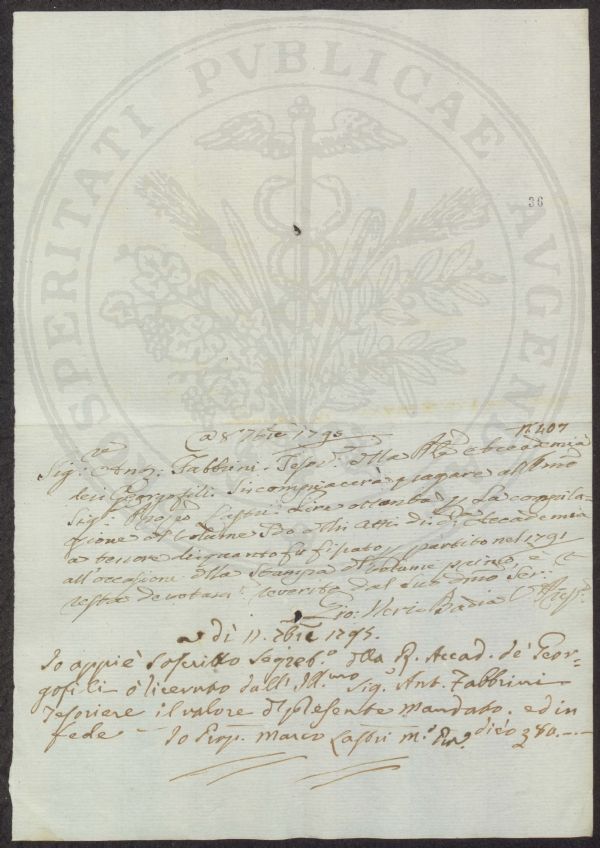 PROSPERITATI PVBLICAE AVGENDAE
36
N. 407
a 8 7bre 1795
Sig.re Ant.o Fabbrini Tesor.e della R.le Accademia
dei Georgofili. Si compiacerà pagare all'Ill.mo
Sig.r Prop.o Lastri Lire ottanta p. La compila-
zione del Volume 3do degli Atti di d.a Accademia
a tenore di quanto fu fissato p. partito nel 1791
all'occasione della Stampa del volume primo, e
resta devotam.te reverita dal Suo dmo Ser.
Gio: Neri Badia
a dì 11. 7bre 1795.
Io appiè Soscritto Segret.o della R. Accad. de' Geor-
gofili ò ricevuto dall' Ill.mo Sig.r Ant. Fabbrini
Tesoriere il valore del presente mandato. ed in
fede Io Prop. Marco Lastri m.o pp.a dico £ 80.--